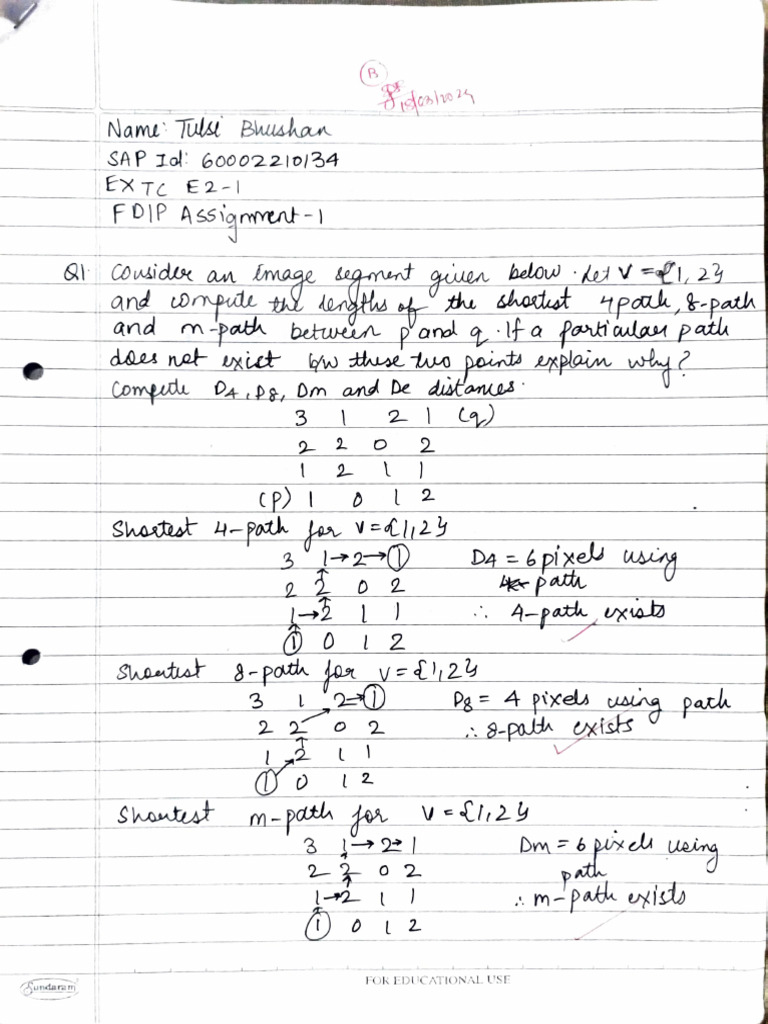 B
15/03/2024
Name: Tulsi Bhushan
SAP Id: 60002210134
EXTC E2-1
FDIP Assignment-1
Q1. Consider an image segment given below. Let V = {1, 2}
and compute the lengths of the shortest 4path, 8-path
and m-path between p and q. If a particular path
does not exist b/w these two points explain why?
Compute D4, D8, Dm and De distances.
3 1 2 1 (q)
2 2 0 2
1 2 1 1
(p) 1 0 1 2
Shortest 4-path for V = {1, 2}
3 1→2→1 D4 = 6 pixels using
2 2 0 2 path
1→2 1 1 ∴ 4-path exists
1 0 1 2
Shortest 8-path for V = {1, 2}
3 1 2→1 D8 = 4 pixels using path
2 2 0 2 ∴ 8-path exists
1 2 1 1
1 0 1 2
Shortest m-path for V = {1, 2}
3 1→2→1 Dm = 6 pixels using
2 2 0 2 path
1→2 1 1 ∴ m-path exists
1 0 1 2
Sundaram FOR EDUCATIONAL USE